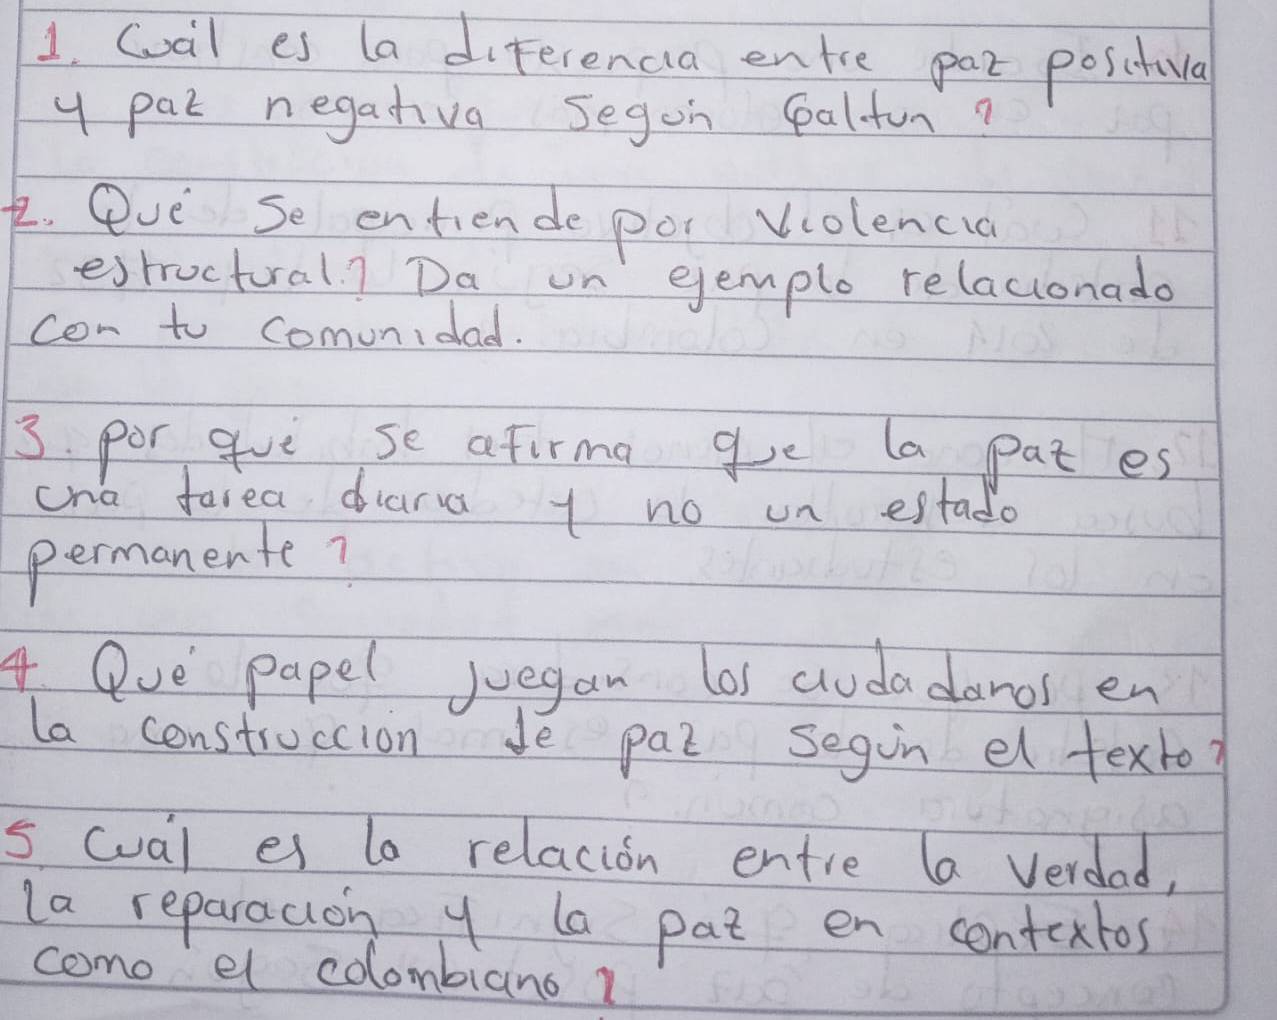 1. Cuál es la diferencia entre paz positiva
y paz negativa según Galtun?
2. Qué se entiende por violencia
estructural? Da un ejemplo relacionado
con tu comunidad.
3. por qué se afirma que la paz es
una tarea diaria y no un estado
permanente?
4. Qué papel juegan los ciudadanos en
la construccion de paz según el texto?
5 Cuál es la relación entre la verdad,
la reparación y la paz en contextos
como el colombiano?